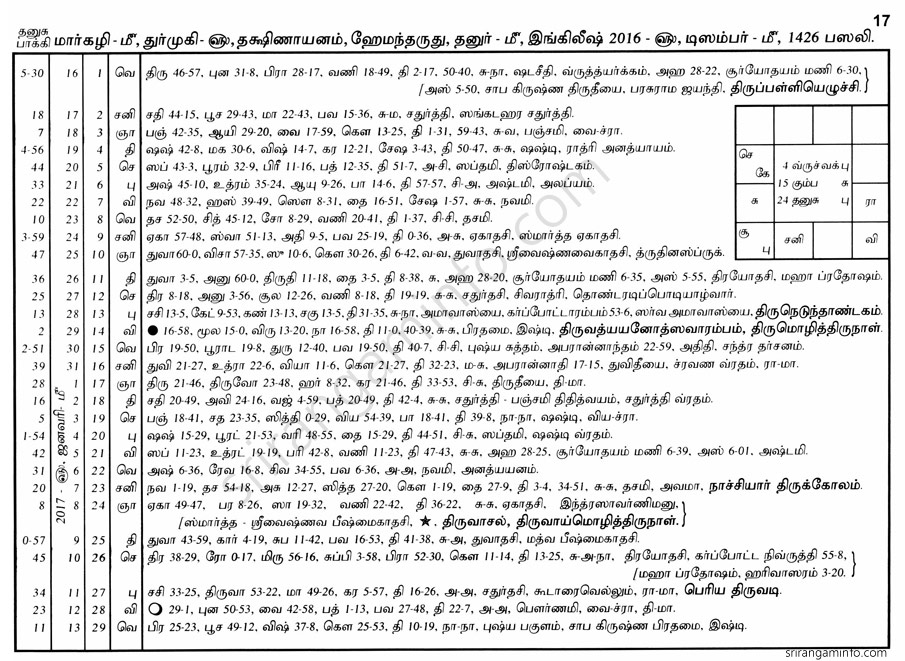 17
தனுசு
பாக்கி மார்கழி - மீ, துர்முகி - ஸ்ரீ, தக்ஷிணாயனம், ஹேமந்தருது, தனுர் - மீ, இங்கிலீஷ் 2016 - ஸ்ரீ, டிஸம்பர் - மீ, 1426 பஸலி.
5-30 16 1 வெ திரு 46-57, புன 31-8, பிரா 28-17, வணி 18-49, தி 2-17, 50-40, சு-நா, ஷடசீதி, வ்ருத்த்யர்க்கம், அஹ 28-22, சூர்யோதயம் மணி 6-30,
[அஸ் 5-50, சாப கிருஷ்ண திருதீயை, பரசுராம ஜயந்தி, திருப்பள்ளியெழுச்சி.
18 17 2 சனி சதி 44-15, பூச 29-43, மா 22-43, பவ 15-36, சு-ம, சதுர்த்தி, ஸங்கடஹர சதுர்த்தி.
7 18 3 ஞா பஞ் 42-35, ஆயி 29-20, வை 17-59, கௌ 13-25, தி 1-31, 59-43, சு-வ, பஞ்சமி, வை-ச்ரா.
4-56 19 4 தி ஷஷ் 42-8, மக 30-6, விஷ் 14-7, கர 12-21, சேஷ 3-43, தி 50-47, சு-சு, ஷஷ்டி, ராத்ரி அனத்யாயம்.
44 20 5 செ ஸப் 43-3, பூரம் 32-9, பிரீ 11-16, பத் 12-35, தி 51-7, அ-சி, ஸப்தமி, திஸ்ரோஷ்டகம்.
33 21 6 பு அஷ் 45-10, உத்ரம் 35-24, ஆயு 9-26, பா 14-6, தி 57-57, சி-அ, அஷ்டமி, அலப்யம்.
22 22 7 வி நவ 48-32, ஹஸ் 39-49, ஸௌ 8-31, தை 16-51, சேஷ 1-57, சு-சு, நவமி.
10 23 8 வெ தச 52-50, சித் 45-12, சோ 8-29, வணி 20-41, தி 1-37, சி-சி, தசமி.
3-59 24 9 சனி ஏகா 57-48, ஸ்வா 51-13, அதி 9-5, பவ 25-19, தி 0-36, அ-சு, ஏகாதசி, ஸ்மார்த்த ஏகாதசி.
47 25 10 ஞா துவா 60-0, விசா 57-35, ஸு 10-6, கௌ 30-26, தி 6-42, வ-வ, துவாதசி, ஸ்ரீவைஷ்ணவைகாதசி, த்ருதினஸ்ப்ருக்.
செ
கே
4 வ்ருச்வக் பு
15 கும்ப சு
24 தனுசு பு
சு
ரா
சூ
பு
சனி
வி
36 26 11 தி துவா 3-5, அனு 60-0, திருதி 11-18, தை 3-5, தி 8-38, சு, அஹ 28-20, சூர்யோதயம் மணி 6-35, அஸ் 5-55, திரயோதசி, மஹா ப்ரதோஷம்.
25 27 12 செ திர 8-18, அனு 3-56, சூல 12-26, வணி 8-18, தி 19-19, சு-சு, சதுர்தசி, சிவராத்ரி, தொண்டரடிப்பொடியாழ்வார்.
13 28 13 பு சசி 13-5, கேட் 9-53, கண் 13-13, சகு 13-5, தி 31-35, சு-நா, அமாவாஸ்யை, கர்ப்போட்டாரம்பம் 53-6, ஸர்வ அமாவாஸ்யை, திருநெடுந்தாண்டகம்.
2 29 14 வி ● 16-58, மூல 15-0, விரு 13-20, நா 16-58, தி 11-0, 40-39, சு-சு, பிரதமை, இஷ்டி, திருவத்யயனோத்ஸவாரம்பம், திருமொழித்திருநாள்.
2-51 30 15 வெ பிர 19-50, பூராட 19-8, துரு 12-40, பவ 19-50, தி 40-7, சி-சி, புஷ்ய சுத்தம், அபரான்னாந்தம் 22-59, அதிதி, சந்த்ர தர்சனம்.
39 31 16 சனி துவி 21-27, உத்ரா 22-6, வியா 11-6, கௌ 21-27, தி 32-23, ம-சு, அபரான்னாதி 17-15, துவிதீயை, ச்ரவண வ்ரதம், ரா-மா.
28 1 17 ஞா திரு 21-46, திருவோ 23-48, ஹர் 8-32, கர 21-46, தி 33-53, சி-சு, திருதீயை, தி-மா.
16 2 18 தி சதி 20-49, அவி 24-16, வஜ் 4-59, பத் 20-49, தி 42-4, சு-சு, சதுர்த்தி - பஞ்சமி திதித்வயம், சதுர்த்தி வ்ரதம்.
5 3 19 செ பஞ் 18-41, சத 23-35, ஸித்தி 0-29, விய 54-39, பா 18-41, தி 39-8, நா-நா, ஷஷ்டி, விய-ச்ரா.
1-54 4 20 பு ஷஷ் 15-29, பூரட் 21-53, வரி 48-55, தை 15-29, தி 44-51, சி-சு, ஸப்தமி, ஷஷ்டி வ்ரதம்.
42 5 21 வி ஸப் 11-23, உத்ரட் 19-19, பரி 42-8, வணி 11-23, தி 47-43, சு-சு, அஹ 28-25, சூர்யோதயம் மணி 6-39, அஸ் 6-01, அஷ்டமி.
31 6 22 வெ அஷ் 6-36, ரேவ 16-8, சிவ 34-55, பவ 6-36, அ-அ, நவமி, அனத்யயனம்.
20 7 23 சனி நவ 1-19, தச 54-18, அசு 12-27, ஸித்த 27-20, கௌ 1-19, தை 27-9, தி 3-4, 34-51, சு-சு, தசமி, அவமா, நாச்சியார் திருக்கோலம்.
8 8 24 ஞா ஏகா 49-47, பர 8-26, ஸா 19-32, வணி 22-42, தி 36-22, சு-சு, ஏகாதசி, இந்த்ரஸாவர்ணிமனு,
[ஸ்மார்த்த - ஸ்ரீவைஷ்ணவ பீஷ்மைகாதசி, ★, திருவாசல், திருவாய்மொழித்திருநாள்.
2017 - ஸ்ரீ, ஜனவரி - மீ
0-57 9 25 தி துவா 43-59, கார் 4-19, சுப 11-42, பவ 16-53, தி 41-38, சு-அ, துவாதசி, மத்வ பீஷ்மைகாதசி.
45 10 26 செ திர 38-29, ரோ 0-17, மிரு 56-16, சுப்பி 3-58, பிரா 52-30, கௌ 11-14, தி 13-25, சு-அ-நா, திரயோதசி, கர்ப்போட்ட நிவ்ருத்தி 55-8,
[மஹா ப்ரதோஷம், ஹரிவாஸரம் 3-20.
34 11 27 பு சசி 33-25, திருவா 53-22, மா 49-26, கர 5-57, தி 16-26, அ-அ, சதுர்தசி, கூடாரைவெல்லும், ரா-மா, பெரிய திருவடி.
23 12 28 வி ○ 29-1, புன 50-53, வை 42-58, பத் 1-13, பவ 27-48, தி 22-7, அ-அ, பௌர்ணமி, வை-ச்ரா, தி-மா.
11 13 29 வெ பிர 25-23, பூச 49-12, விஷ் 37-8, கௌ 25-53, தி 10-19, நா-நா, புஷ்ய பகுளம், சாப கிருஷ்ண பிரதமை, இஷ்டி.
srirangaminfo.com
srirangaminfo.com